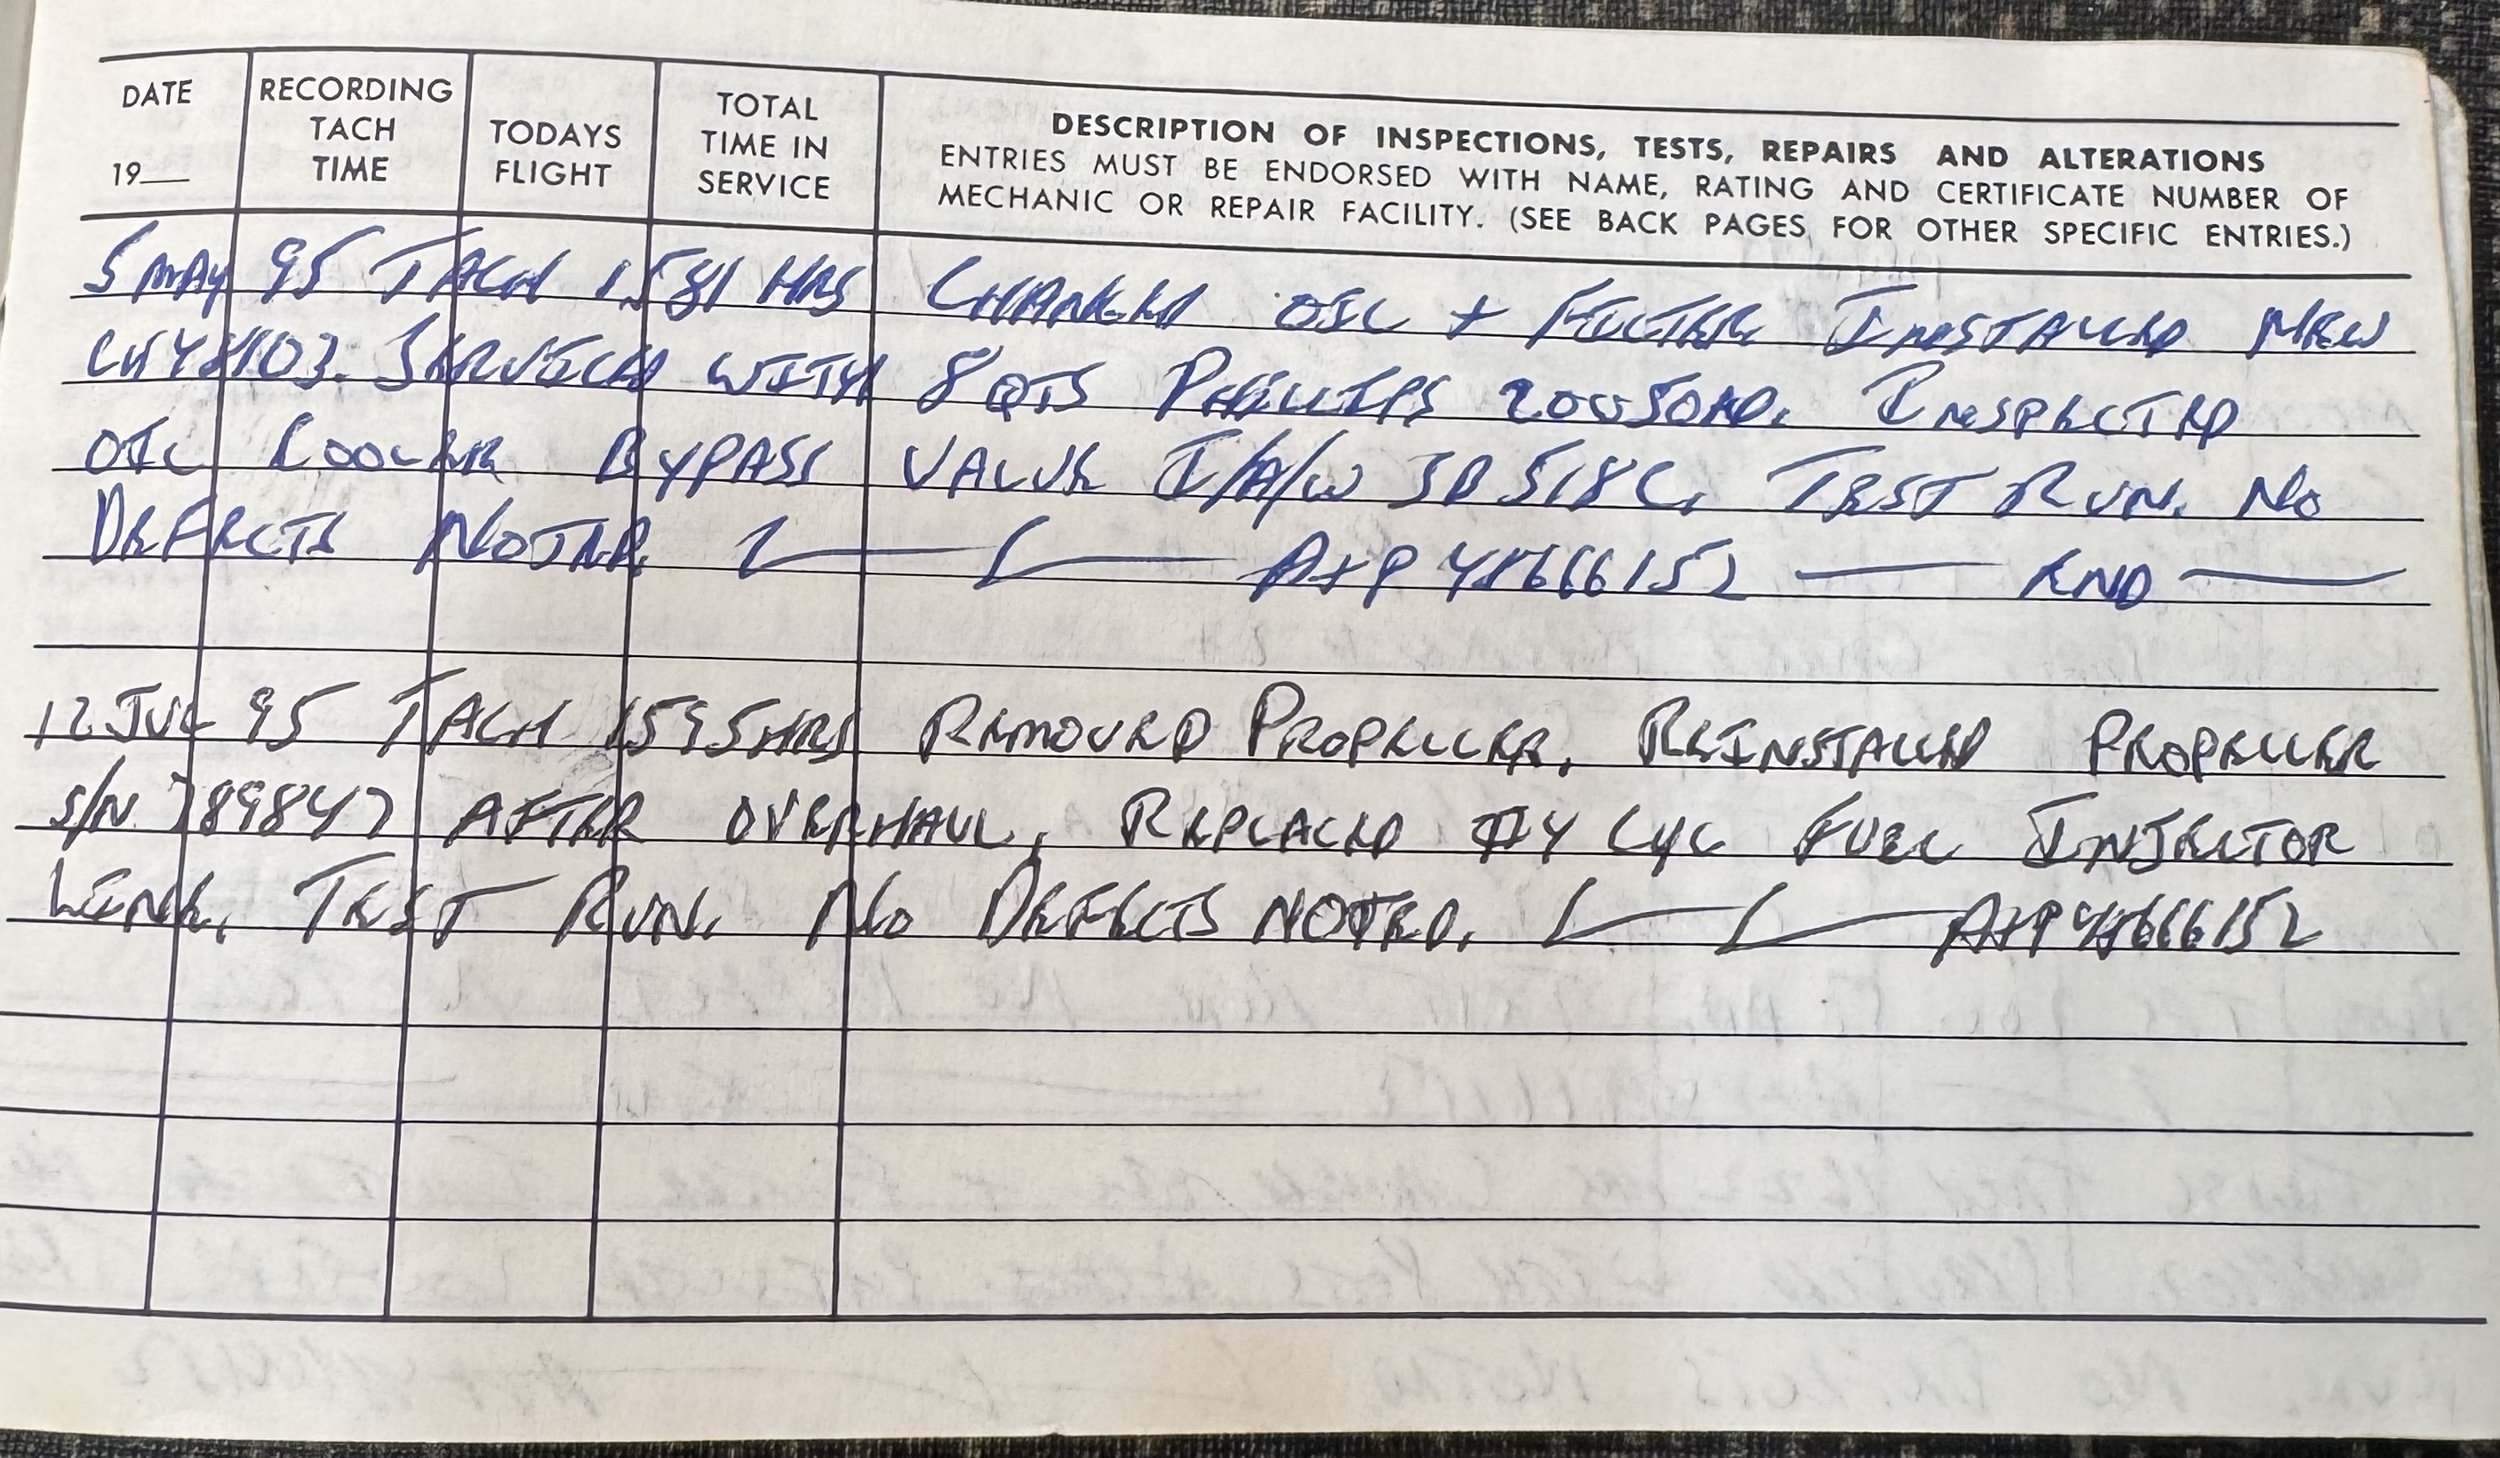 DATE
19__
RECORDING
TACH
TIME
TODAYS
FLIGHT
TOTAL
TIME IN
SERVICE
DESCRIPTION OF INSPECTIONS, TESTS, REPAIRS AND ALTERATIONS
ENTRIES MUST BE ENDORSED WITH NAME, RATING AND CERTIFICATE NUMBER OF
MECHANIC OR REPAIR FACILITY. (SEE BACK PAGES FOR OTHER SPECIFIC ENTRIES.)
5 MAY 95 TACH 1581 HRS CHANGED OIL + FILTER INSTALLED NEW
CH48103. SERVICED WITH 8 QTS PHILLIPS 20W50AD. INSPECTED
OIL COOLER BYPASS VALVE I/A/W SB 518C. TEST RUN. NO
DEFECTS NOTED. A+P 48666152 — END —
12 JUL 95 TACH 1595 HRS REMOVED PROPELLER, REINSTALLED PROPELLER
S/N 789847 AFTER OVERHAUL, REPLACED #4 CYL FUEL INJECTOR
LINE. TEST RUN. NO DEFECTS NOTED. A+P 48666152